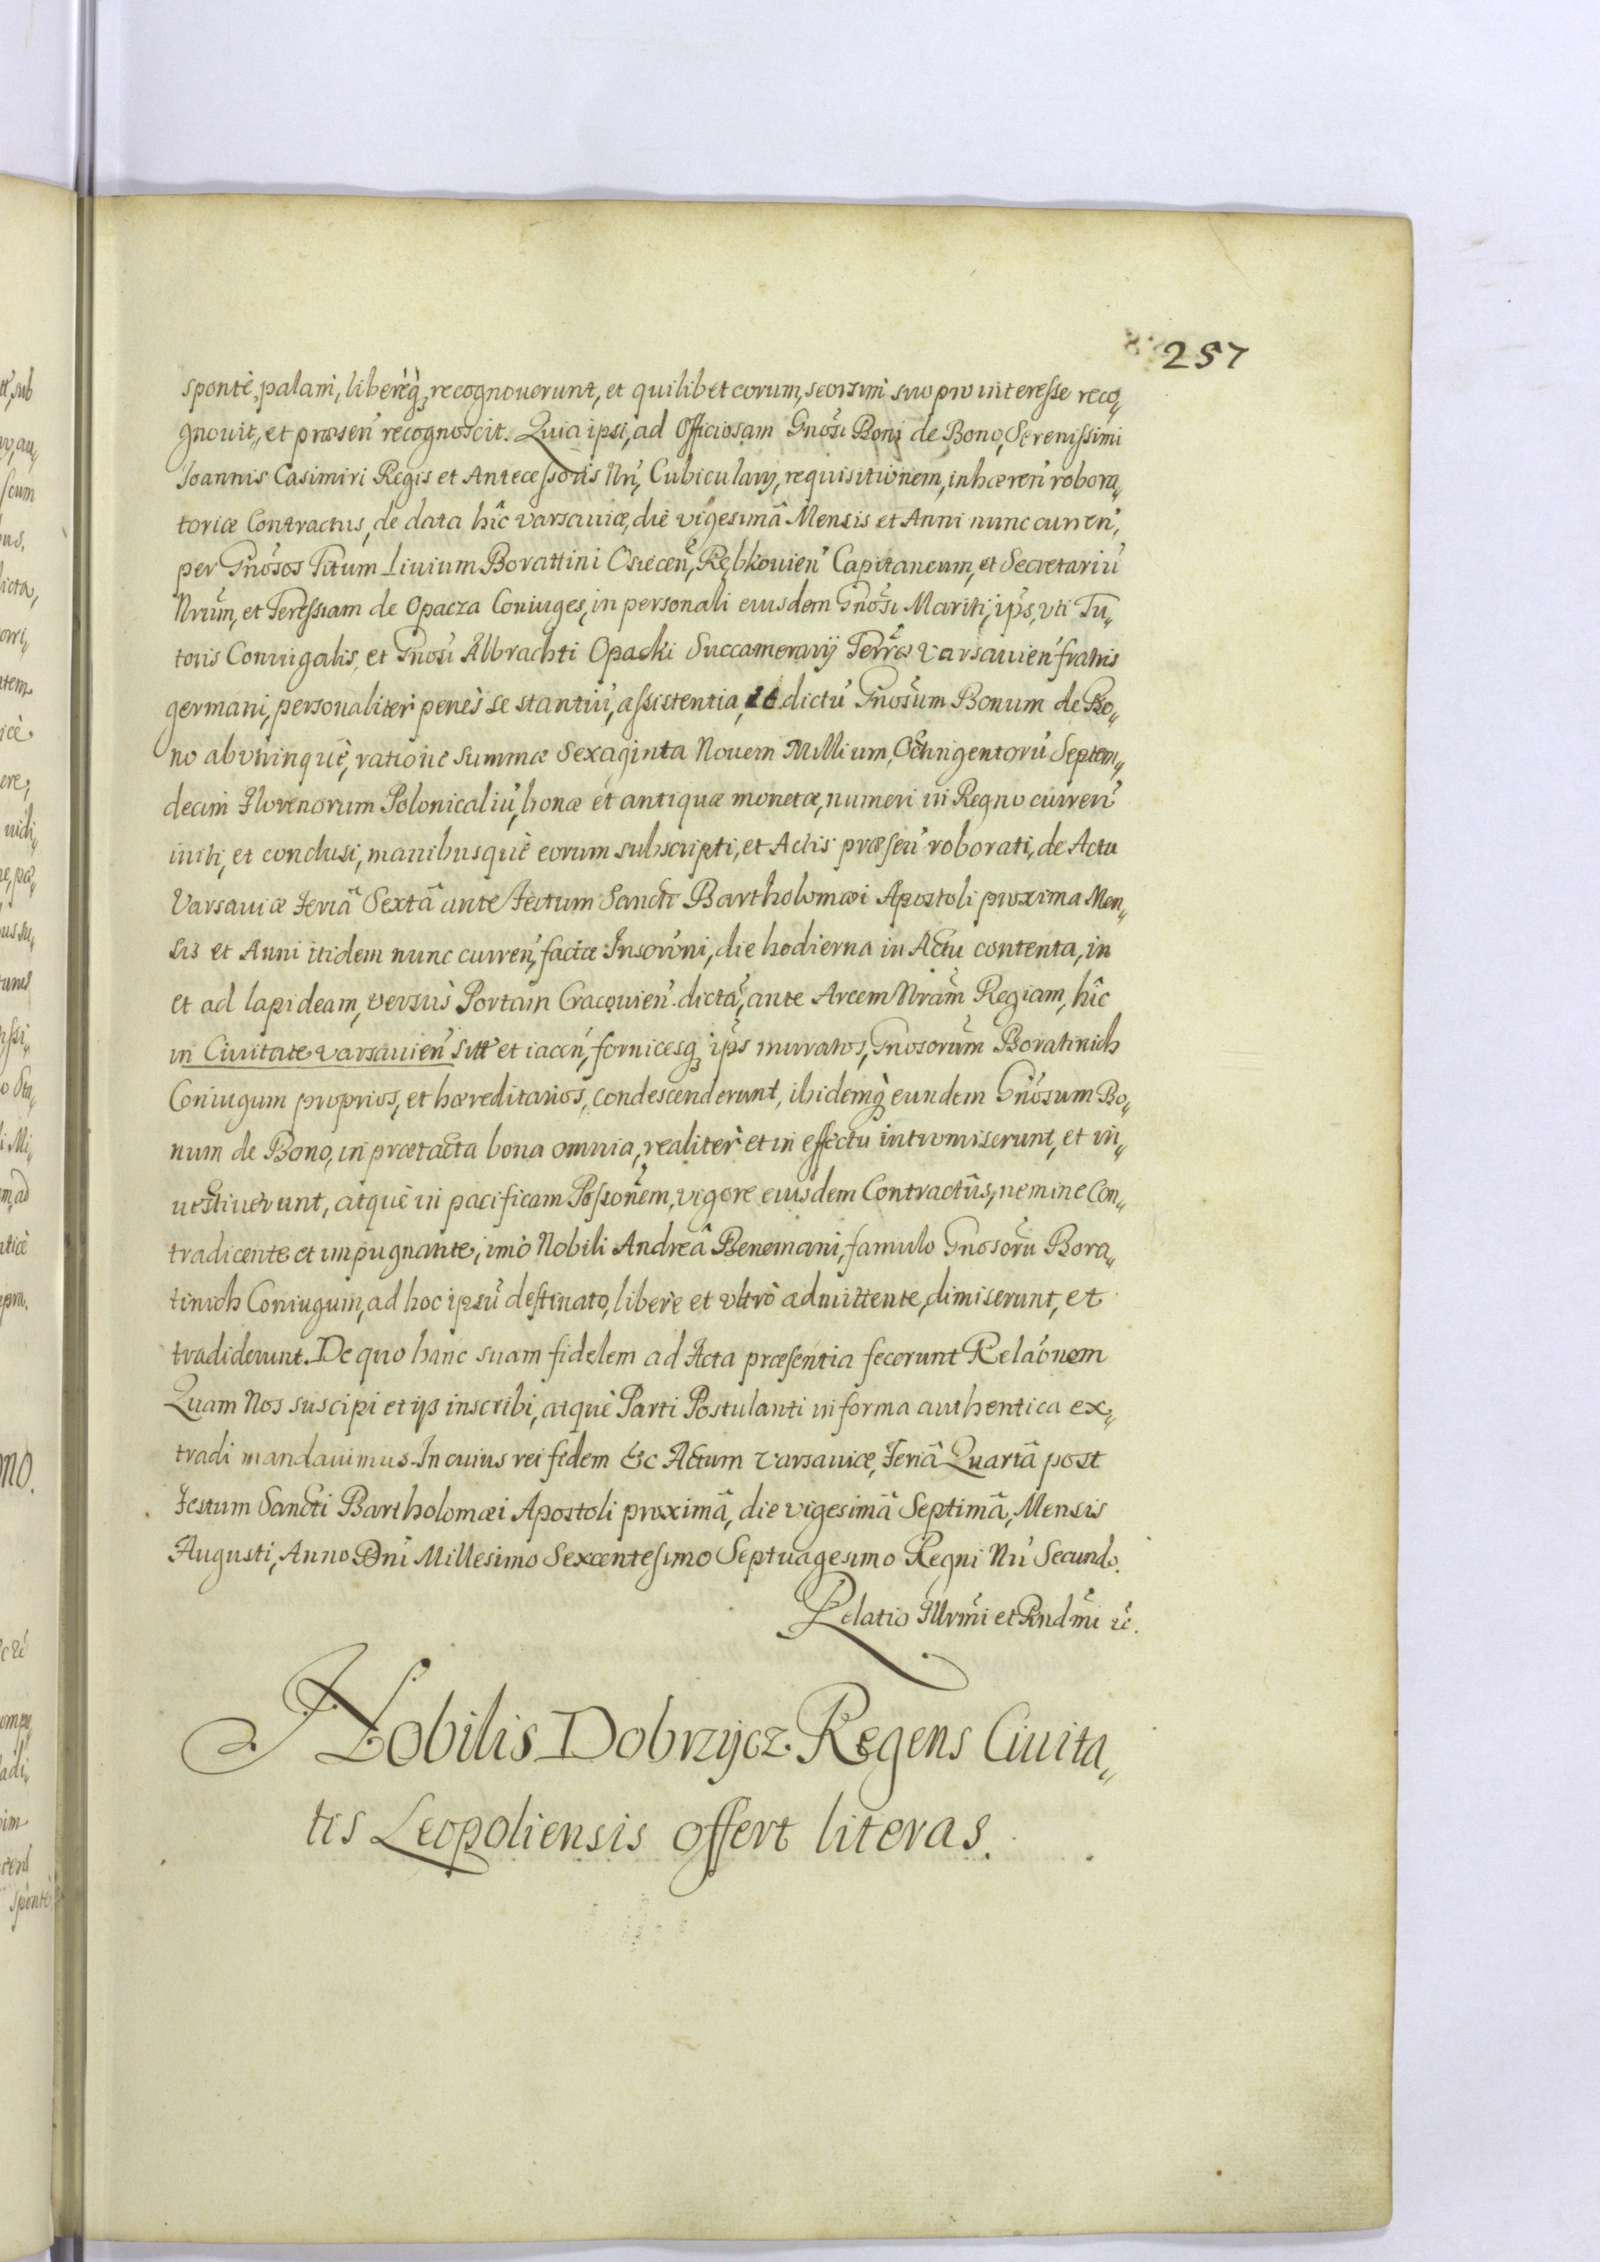 257
spontè, palam, liberèq, recognouerunt, et quilibet eorum, seorsim suo pro interesse reco„
gnouit, et præsen̄ recognoscit. Quia ipsi, ad Officiosam Gnõsi Boni de Bono, Serenissimi
Joannis Casimiri Regis et Antecessoris Nrĩ, Cubicularij, requisitionem, inhæren̄ robora„
toriæ Contractus, de data hîc Varsauiæ, die vigesimâ Mensis et Anni nunc curren̄,
per Gnõsos Titum Liuium Borattini Osiecen̄, Rębkouien̄ Capitaneum, et Secretariũ
Nrũm, et Teressiam de Opacza Coniuges, in personali eiusdem Gnõsi Mariti, ips̃, vti Tu„
toris Coniugalis, et Gnõsi Albrachti Opacki Succamerarij Terræ Varsauien̄ fratris
germani, personaliter penès se stantiũ, assistentia, dictũ Gnõsum Bonum de Bo„
no abvtrinquè, ratione summæ Sexaginta Nouem Millium, Octingentorũ Septem„
decim Florenorum Polonicaliũ, bonæ et antiquæ monetæ, numeri in Regno curren̄
initi, et conclusi, manibusquè eorum subscripti, et Actis præsen̄ roborati, de Actu
Varsauiæ Feriâ Sextâ ante Festum Sancti Bartholomæi Apostoli proxima Men„
sis et Anni itidem nunc curren̄, factæ Inscrõni, die hodierna in Actu contenta, in
et ad lapideam, versùs Portam Cracouien̄ dictã, ante Arcem Nrãm Regiam, hîc
in Ciuitate Varsauien̄ sitt̃ et iacen̄, fornicesq, ips̃ murratos, Gnosorũm Boratinich
Coniugum proprios, et hæreditarios, condescenderunt, ibidemq̀ eundem Gnõsum Bo„
num de Bono, in prætacta bona omnia, realiter et in effectu intromiserunt, et in„
uestiuerunt, atquè in pacificam Possonẽm, vigore eiusdem Contractûs, nemine Con„
tradicente et impugnante, imò Nobili Andreâ Benemani, famulo Gnosorũ Bora„
tinich Coniugum, ad hoc ipsũ destinato, liberè et vltrò admittente, dimiserunt, et
tradiderunt. De quo hanc suam fidelem ad Acta præsentia fecerunt Relaõnem
Quam Nos suscipi et ijs inscribi, atquè Parti Postulanti in forma authentica ex„
tradi mandauimus. In cuius rei fidem &c Actum Varsauiæ, Feriâ Quartâ post
Festum Sancti Bartholomæi Apostoli proximâ, die vigesimâ Septimâ, Mensis
Augusti, Anno Dnĩ Millesimo Sexcentesimo Septuagesimo Regni Nrĩ Secundo.
Relatio Illrmĩ et Rndmĩ &c̃.
Nobilis Dobrzycz Regens Ciuita„
tis Leopoliensis offert literas.